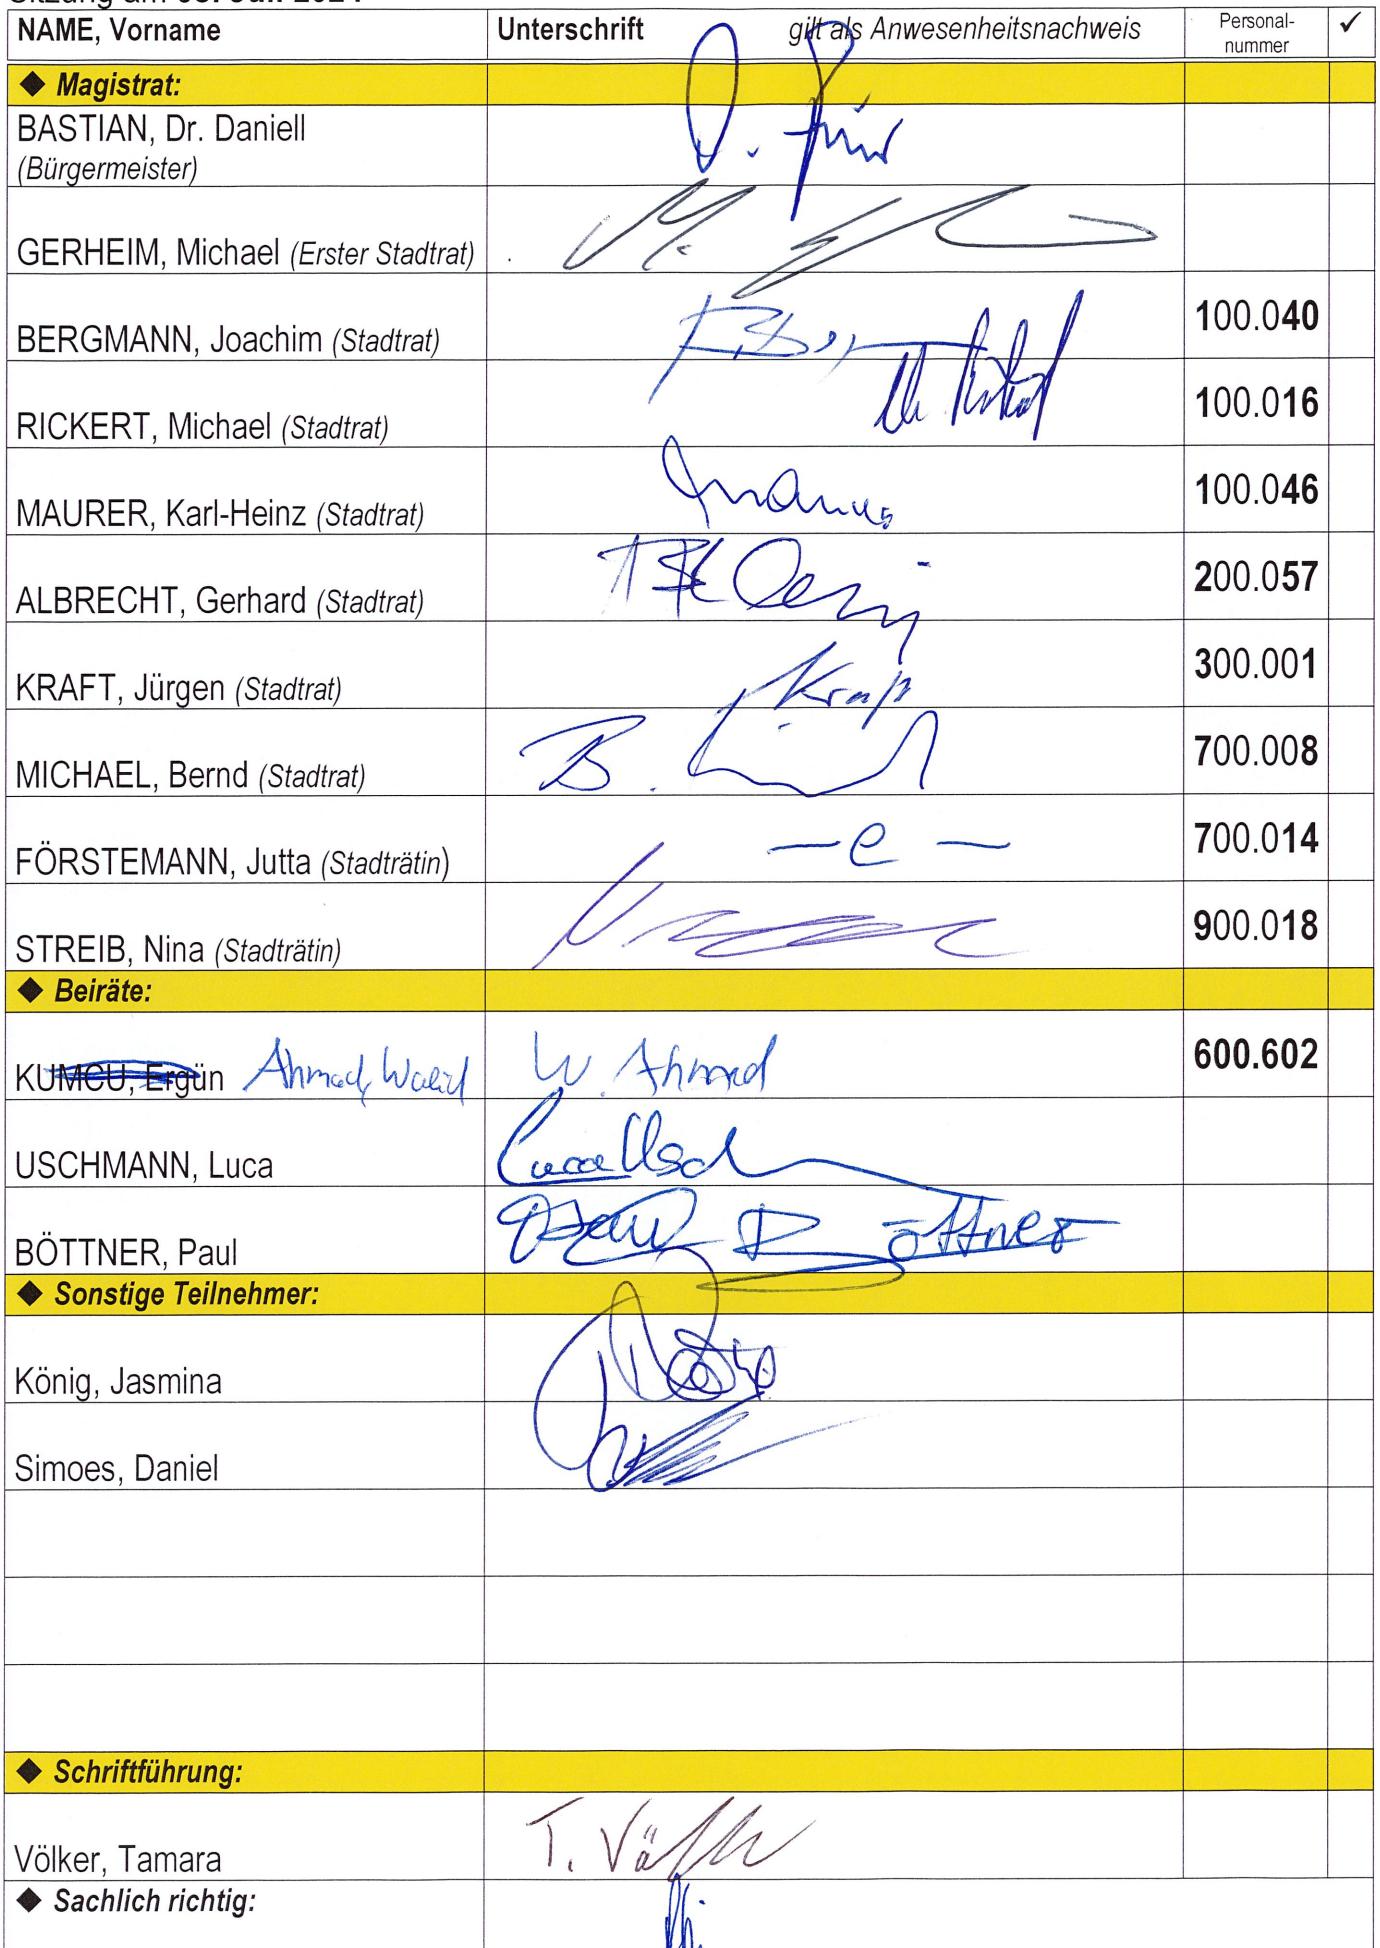 NAME, Vorname Unterschrift gilt als Anwesenheitsnachweis Personal-nummer ✓
◆ Magistrat:
BASTIAN, Dr. Daniell
(Bürgermeister)
GERHEIM, Michael (Erster Stadtrat)
BERGMANN, Joachim (Stadtrat) 100.040
RICKERT, Michael (Stadtrat) 100.016
MAURER, Karl-Heinz (Stadtrat) 100.046
ALBRECHT, Gerhard (Stadtrat) 200.057
KRAFT, Jürgen (Stadtrat) Kraft 300.001
MICHAEL, Bernd (Stadtrat) B. 700.008
FÖRSTEMANN, Jutta (Stadträtin) – e – 700.014
STREIB, Nina (Stadträtin) 900.018
◆ Beiräte:
KUMCU, Ergün Ahmad, Walid W. Ahmad 600.602
USCHMANN, Luca Luca Usch
BÖTTNER, Paul Paul Böttner
◆ Sonstige Teilnehmer:
König, Jasmina
Simoes, Daniel
◆ Schriftführung:
Völker, Tamara T. Völker
◆ Sachlich richtig: